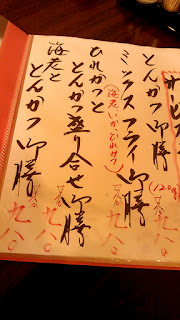 とんかつ御膳
(120g)
九八〇
ミックスフライ御膳
(海老、いか、ひれかつ)
ひれかつと
とんかつ盛り合せ御膳
九八〇
海老と
とんかつ御膳
九八〇